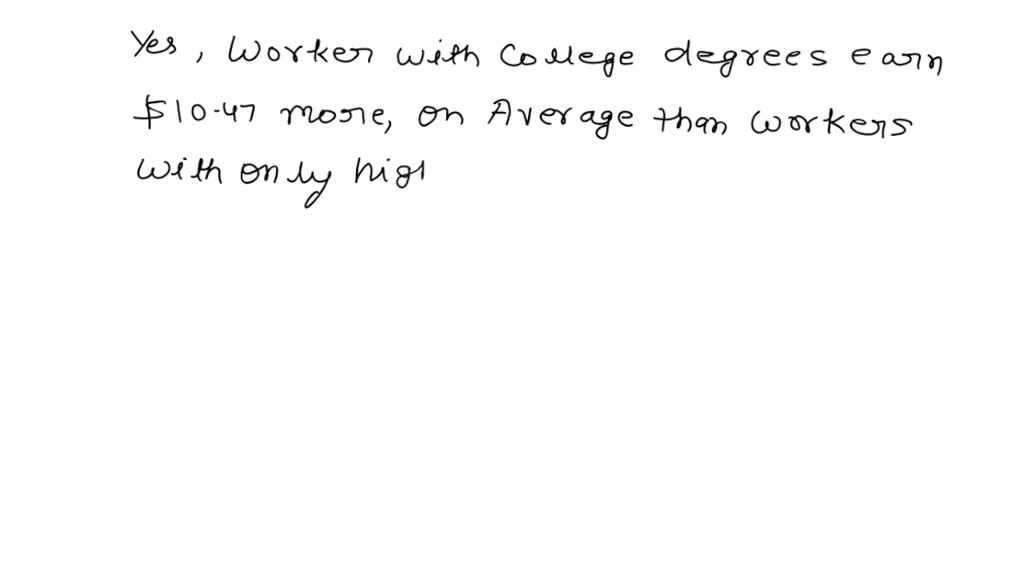 Yes, Worker with College degrees earn
$10.47 more, on Average than workers
with only hig